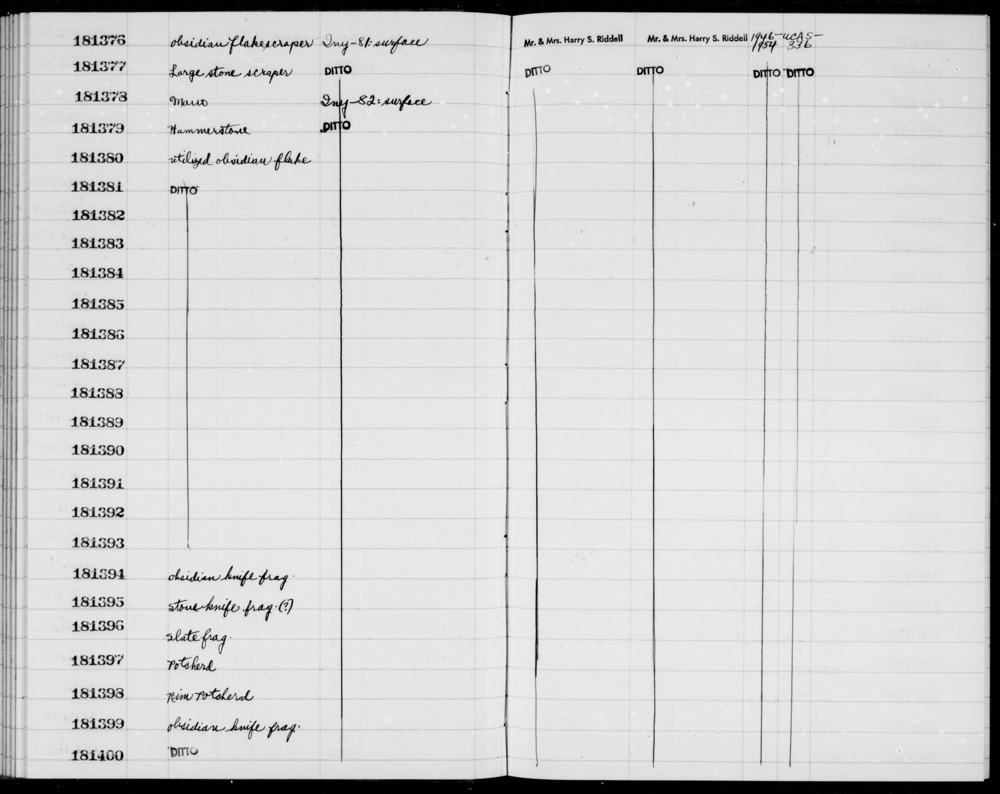 181376 obsidian flakescraper Iny-81: surface Mr. & Mrs. Harry S. Riddell Mr. & Mrs. Harry S. Riddell 1946-1954 UCAS-336
181377 Large stone scraper DITTO DITTO DITTO DITTO DITTO
181378 Mano Iny-82: surface
181379 Hammerstone DITTO
181380 utilized obsidian flake
181381 DITTO
181382
181383
181384
181385
181386
181387
181388
181389
181390
181391
181392
181393
181394 obsidian knife frag.
181395 stone knife frag. (?)
181396 slate frag.
181397 Potsherd
181398 Rim Potsherd
181399 obsidian knife frag.
181400 DITTO